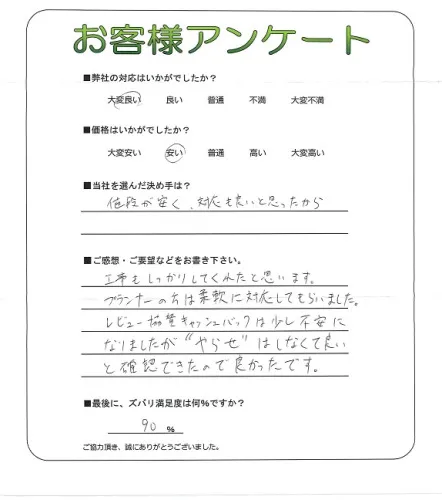 お客様アンケート
■弊社の対応はいかがでしたか？
大変良い 良い 普通 不満 大変不満
■価格はいかがでしたか？
大変安い 安い 普通 高い 大変高い
■当社を選んだ決め手は？
値段が安く、対応も良いと思ったから
■ご感想・ご要望などをお書き下さい。
工事もしっかりしてくれたと思います。
プランナーの方は柔軟に対応してもらいました。
レビュー協賛キャッシュバックは少し不安に
なりましたが“やらせ”はしなくて良い
と確認できたので良かったです。
■最後に、ズバリ満足度は何%ですか？
90 %
ご協力頂き、誠にありがとうございました。